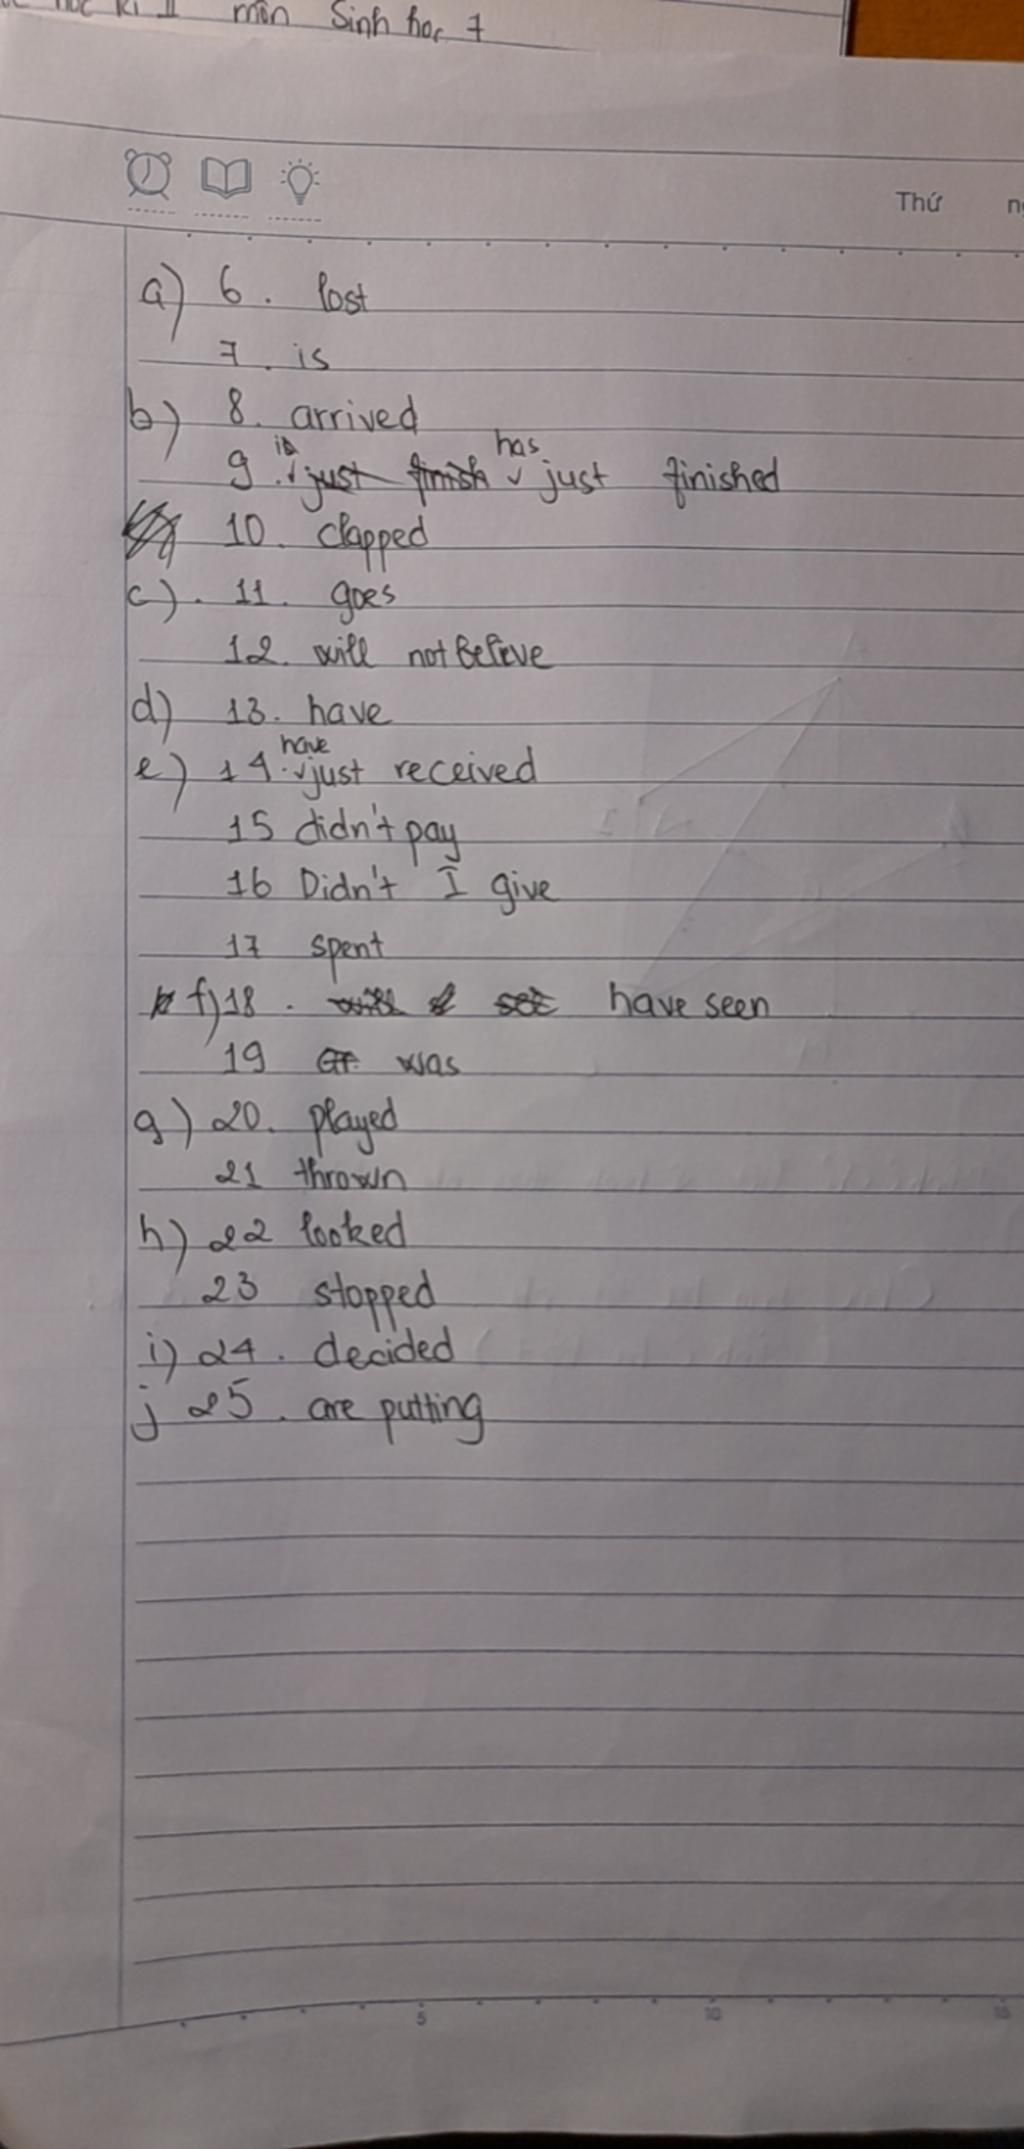 học kì II môn Sinh học 7
Thứ
a) 6. lost
7. is
b) 8. arrived
9. is just finish has just finished
10. clapped
c). 11. goes
12. will not believe
d) 13. have
e) 14. have just received
15 didn't pay
16 Didn't I give
17 spent
f) 18. will I see have seen
19 was
g) 20. played
21 thrown
h) 22 looked
23 stopped
i) 24. decided
j 25. are putting
5 10 15